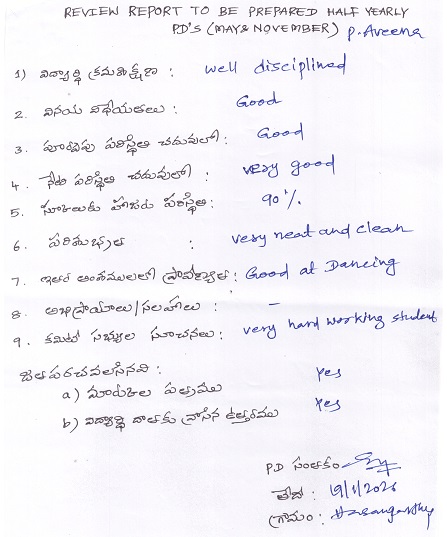 REVIEW REPORT TO BE PREPARED HALF YEARLY
P.D'S (MAY & NOVEMBER) P. Aveena
1) విద్యార్థి క్రమశిక్షణ : well disciplined
2. వినయ విధేయతలు : Good
3. పూర్వపు పరిస్థితి చదువులో : Good
4. నేటి పరిస్థితి చదువులో : very good
5. స్కూలుకు హాజరు పరిస్థితి : 90%
6. పరిశుభ్రత : very neat and clean
7. ఇతర అంశములలో ప్రావీణ్యత : Good at Dancing
8. అభిప్రాయాలు/సలహాలు : -
9. కమిటీ సభ్యుల సూచనలు : very hard working student
జతపరచవలసినవి :
a) మార్కుల పత్రము Yes
b) విద్యార్థి దాతకు వ్రాసిన ఉత్తరము Yes
P.D సంతకం
తేది : 19/1/2026
గ్రామం : Hasanparthy